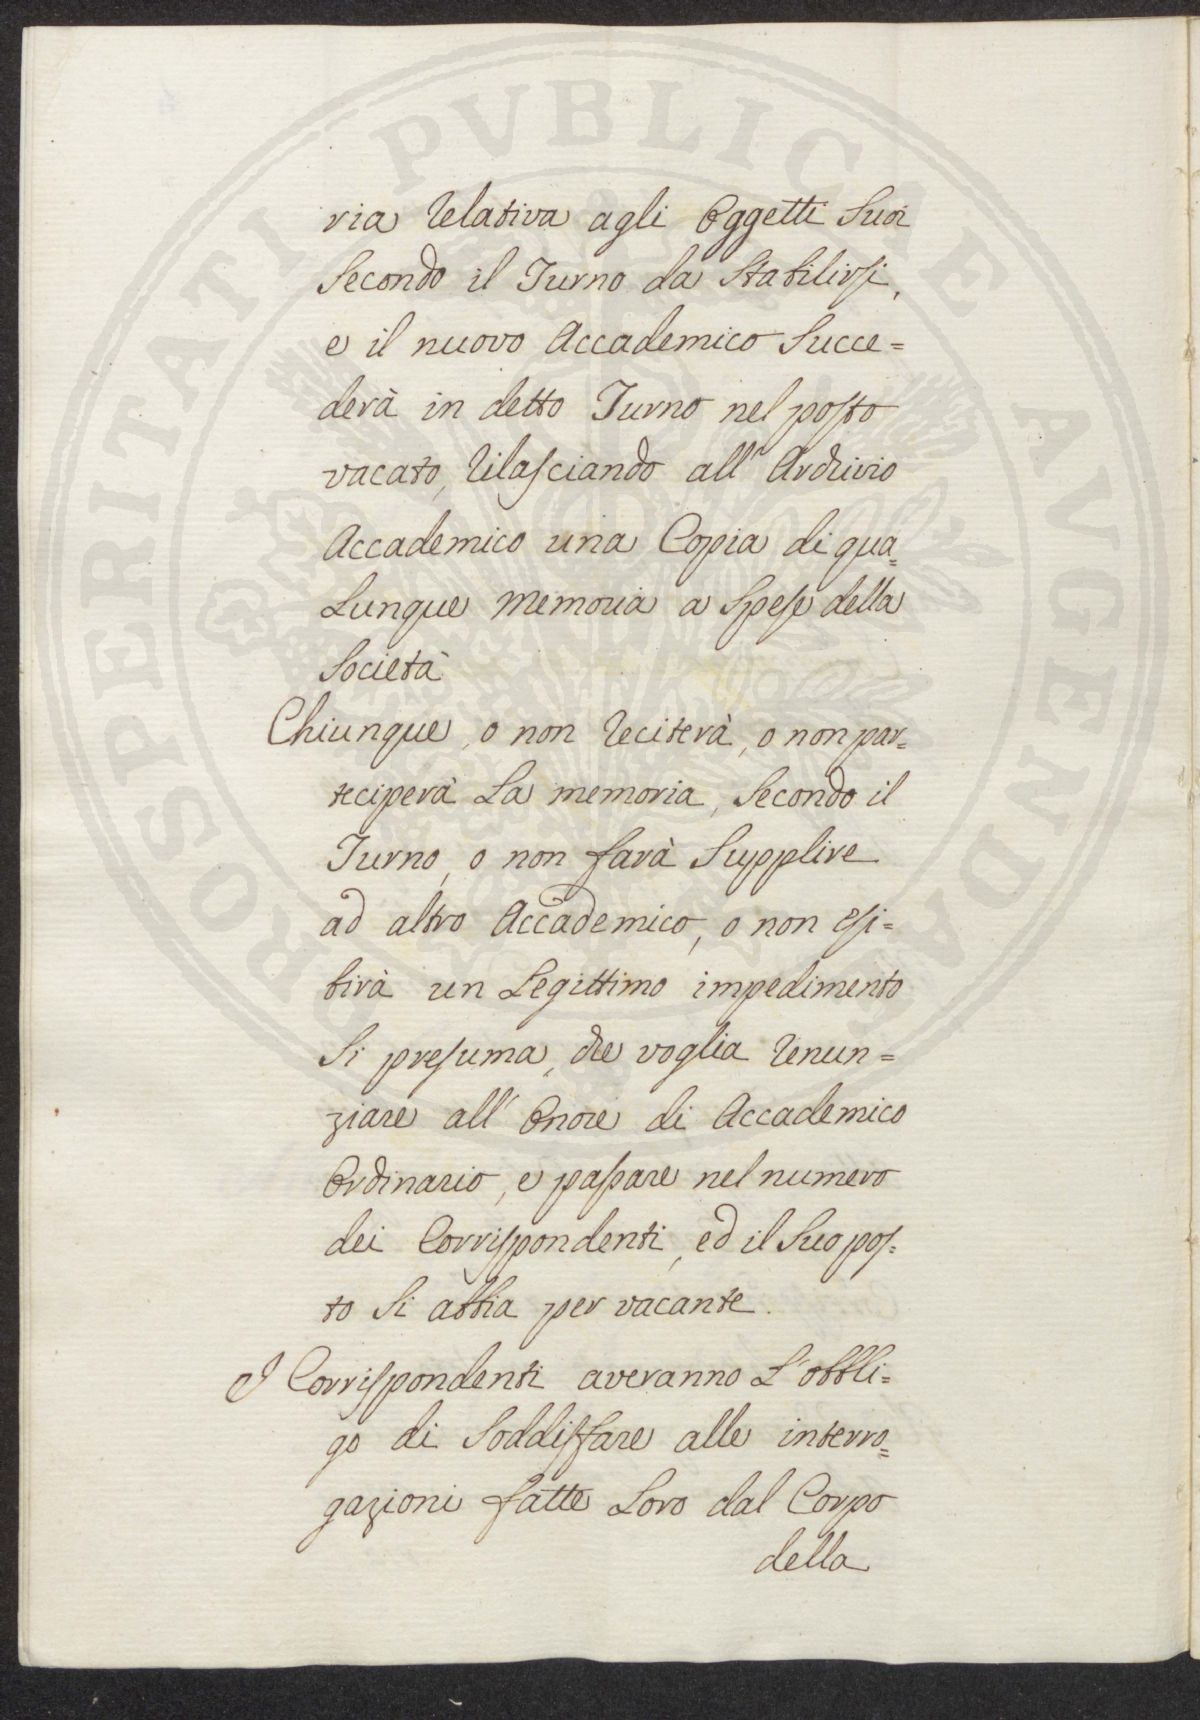 PROSPERITATI PVBLICAE AVGENDAE
ria relativa agli Oggetti Suoi
Secondo il Turno da Stabilirsi,
e il nuovo Accademico Succe=
derà in detto Turno nel posto
vacato, rilasciando all' Archivio
Accademico una Copia di qua=
Lunque memoria a Spese della
Società
Chiunque, o non reciterà, o non par=
teciperà La memoria, Secondo il
Turno, o non farà Supplire
ad altro Accademico, o non esi=
birà un Legittimo impedimento
Si presuma, che voglia renun=
ziare all' Onore di Accademico
Ordinario, e passare nel numero
dei Corrispondenti, ed il Suo pos=
to Si abbia per vacante.
I Corrispondenti averanno L'obbli=
go di Soddisfare alle interro=
gazioni fatte Loro dal Corpo
della